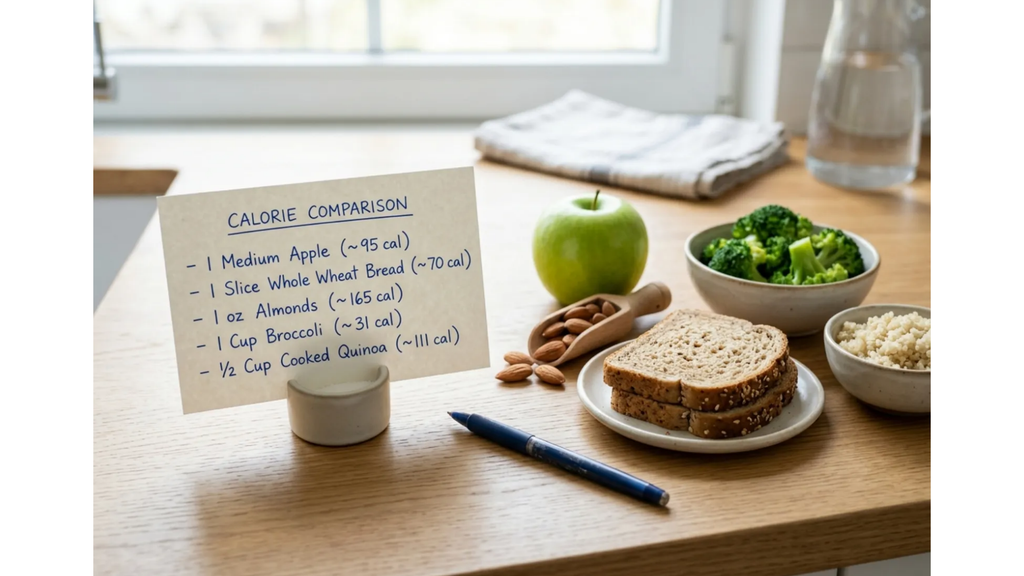 CALORIE COMPARISON
- 1 Medium Apple (~95 cal)
- 1 Slice Whole Wheat Bread (~70 cal)
- 1 oz Almonds (~165 cal)
- 1 Cup Broccoli (~31 cal)
- ½ Cup Cooked Quinoa (~111 cal)